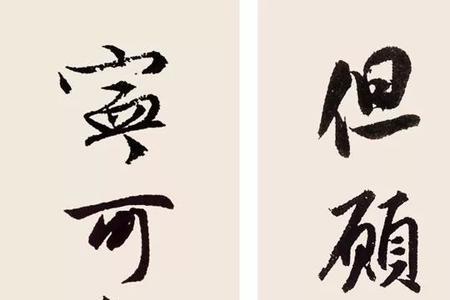 但願
寧可